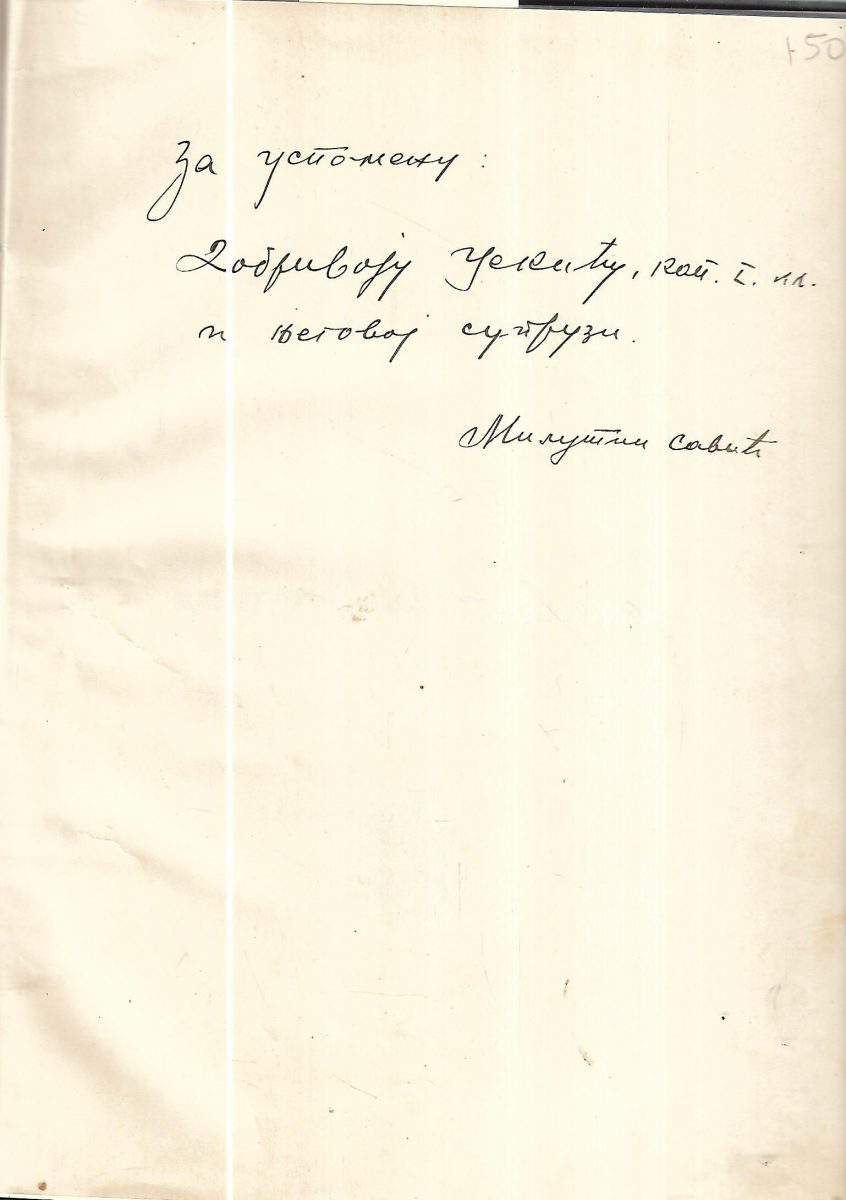 150
За успомену :
Добривоју Ускићу, кап. I. кл.
и његовој супрузи.
Милутин Савић